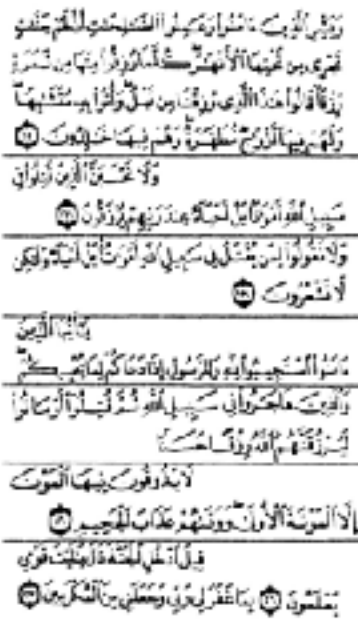 وَبَشِّرِ الَّذِينَ ءَامَنُوا وَعَمِلُوا الصَّٰلِحَٰتِ أَنَّ لَهُمْ جَنَّٰتٍ
تَجْرِى مِن تَحْتِهَا الْأَنْهَٰرُ كُلَّمَا رُزِقُوا مِنْهَا مِن ثَمَرَةٍ
رِّزْقًا قَالُوا هَٰذَا الَّذِى رُزِقْنَا مِن قَبْلُ وَأُتُوا بِهِ مُتَشَٰبِهًا
وَلَهُمْ فِيهَا أَزْوَٰجٌ مُّطَهَّرَةٌ وَهُمْ فِيهَا خَٰلِدُونَ ٢٥
وَلَا تَحْسَبَنَّ الَّذِينَ قُتِلُوا فِى
سَبِيلِ اللَّهِ أَمْوَٰتًا بَلْ أَحْيَاءٌ عِندَ رَبِّهِمْ يُرْزَقُونَ ١٦٩
وَلَا تَقُولُوا لِمَن يُقْتَلُ فِى سَبِيلِ اللَّهِ أَمْوَٰتٌ بَلْ أَحْيَاءٌ وَلَٰكِن
لَّا تَشْعُرُونَ ١٥٤
يَٰأَيُّهَا الَّذِينَ
ءَامَنُوا اسْتَجِيبُوا لِلَّهِ وَلِلرَّسُولِ إِذَا دَعَاكُمْ لِمَا يُحْيِيكُمْ
وَالَّذِينَ هَاجَرُوا فِى سَبِيلِ اللَّهِ ثُمَّ قُتِلُوا أَوْ مَاتُوا
لَيَرْزُقَنَّهُمُ اللَّهُ رِزْقًا حَسَنًا
لَا يَذُوقُونَ فِيهَا الْمَوْتَ
إِلَّا الْمَوْتَةَ الْأُولَىٰ وَوَقَىٰهُمْ عَذَابَ الْجَحِيمِ ٥٦
قِيلَ ادْخُلِ الْجَنَّةَ قَالَ يَٰلَيْتَ قَوْمِى
يَعْلَمُونَ ٢٦ بِمَا غَفَرَ لِى رَبِّى وَجَعَلَنِى مِنَ الْمُكْرَمِينَ ٢٧